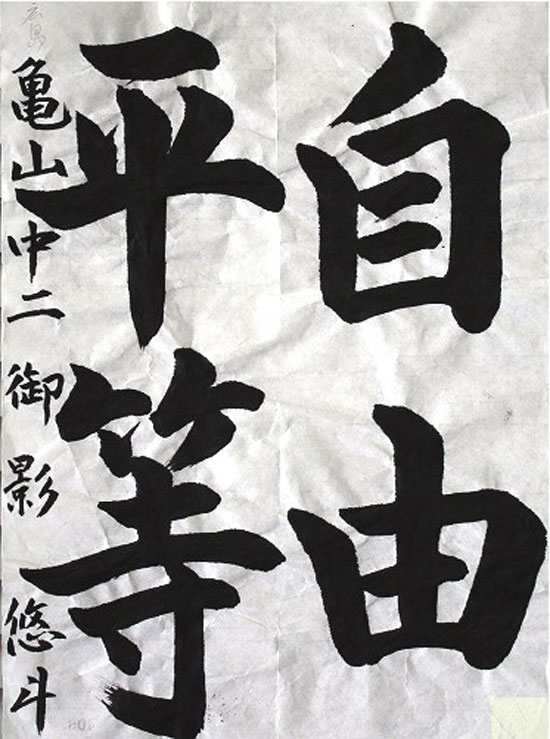 自由
平等
亀山中二 御影 悠斗
広島